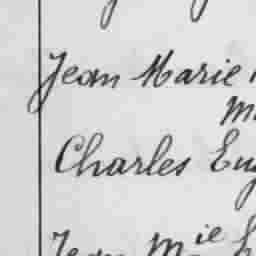 Jean Marie
Charles Eug
Jean Mie